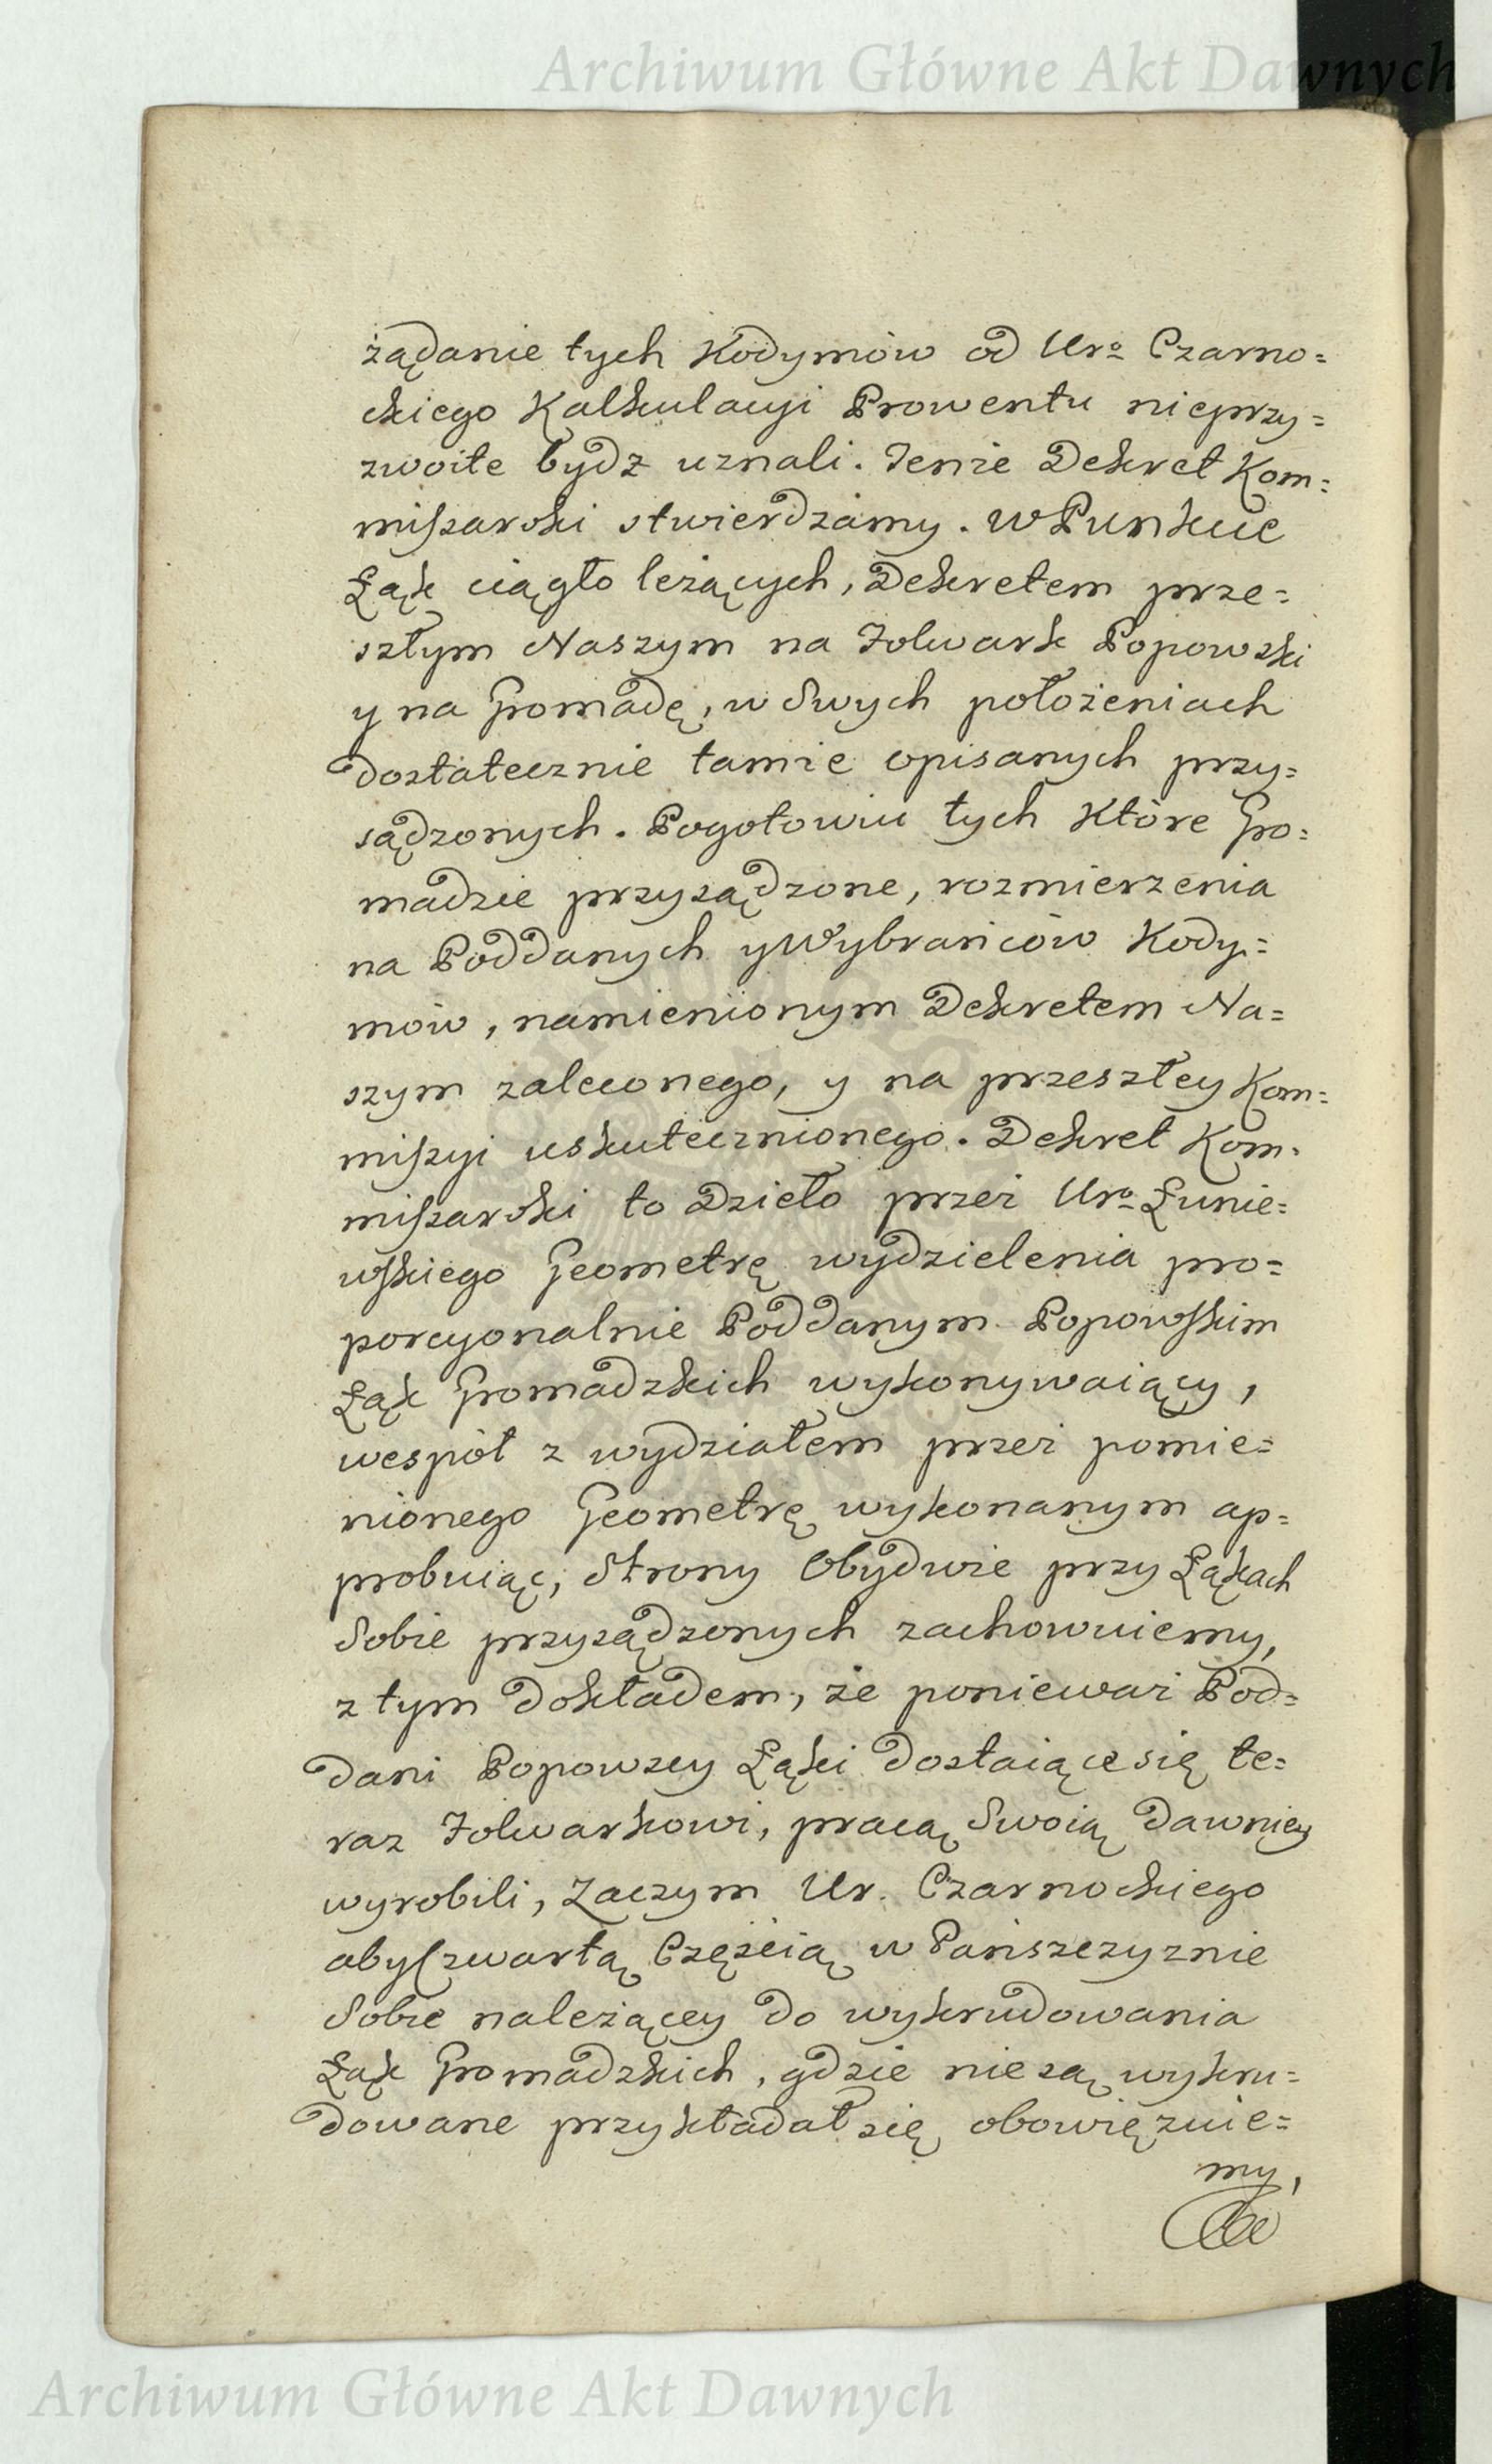 Archiwum Główne Akt Dawnych
żądanie tych Kodymów od Uro Czarno=
ckiego Kalkulacyi Prowentu nieprzy=
zwoite bydz uznali. Tenże Dekret Kom=
missarski stwierdzamy. W Punkcie
Łąk ciągło leżących, Dekretem prze=
szłym Naszym na Folwark Popowski
y na Gromadę, w Swych położeniach
dostatecznie tamże opisanych przy=
sądzonych. Pogotowiu tych Które Gro=
madzie przysądzone, rozmierzenia
na Poddanych y Wybrańców Kody=
mów, namienionym Dekretem Na=
szym zaleconego, y na przeszłey Kom=
missyi uskutecznionego. Dekret Kom=
missarski to Dzieło przez Uro Łunie=
wskiego Geometrę wydzielenia pro=
porcyonalnie Poddanym Popowskim
Łąk Gromadzkich wykonywaiący,
wespół z wydziałem przez pomie=
nionego Geometrę wykonanym ap=
probuiąc, Strony Obydwie przy Łąkach
Sobie przysądzonych zachowuiemy,
z tym dokładem, że ponieważ Pod=
dani Popowscy Łąki dostaiące się te=
raz Folwarkowi, pracą Swoią dawniey
wyrobili, Zaczym Ur. Czarnockiego
aby Czwartą Częścią w Pańszczyznie
Sobie należącey do wykrudowania
Łąk Gromadzkich, gdzie nie są wykru=
dowane przykładał się obowięzuie=
my,
Archiwum Główne Akt Dawnych